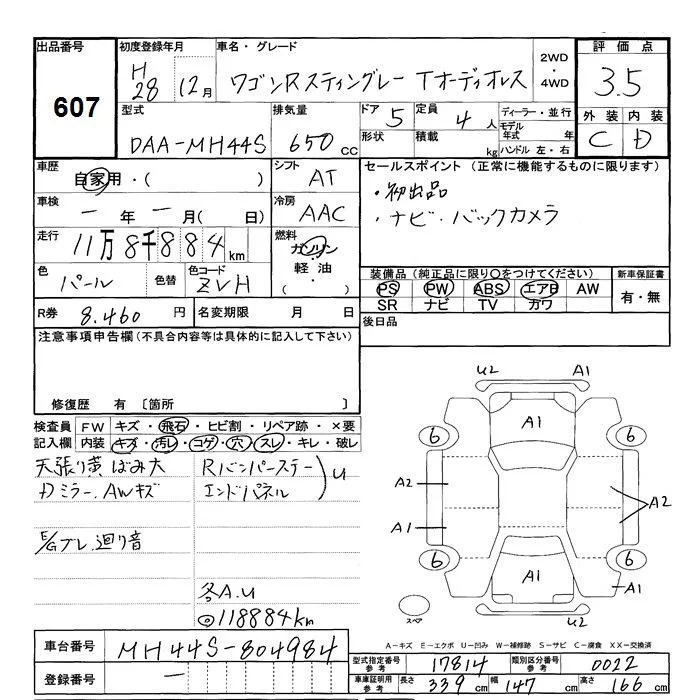 出品番号 607
初度登録年月 H28 12月
車名・グレード ワゴンRスティングレー Tオーディオレス
2WD・4WD
評価点 3.5
型式 DAA-MH44S
排気量 650cc
ドア 5
定員 4人
形状 積載 kg
ディーラー・並行
モデル年式 年式
ハンドル 左・右
外装 内装
C D
車歴 自家用・( )
シフト AT
セールスポイント(正常に機能するものに限ります)
・初出品
・ナビ・バックカメラ
車検 ー年ー月(日)
冷房 AAC
走行 11万8千884km
燃料 ガソリン
軽油
・( )
色 パール
色替
色コード ZVH
装備品(純正品に限り○をつけてください)
PS PW ABS エアB AW
SR ナビ TV カワ
新車保証書
有・無
R券 8.460円
名変期限 月 日
後日品
注意事項申告欄(不具合内容等は具体的に記入して下さい)
修復歴 有 〔箇所 〕
検査員記入欄
FW キズ・飛石・ヒビ割・リペア跡・×要
内装 キズ・汚レ・コゲ・穴・スレ・キレ・破レ
天張り黄ばみ大
Dミラー.AWキズ
E/Gブレ.廻り音
Rバンパーステー
エンドパネル
U
冬A.U
◎118884km
U2 A1
A1
6 6
A2
A2
A1
6 6
A1
A1
スペア
U2
A-キズ E-エクボ U-凹み W-補修跡 S-サビ C-腐食 XX-交換済
車台番号 MH44S-804984
登録番号 ー
型式指定番号参考 17814
類別区分番号参考 0022
車庫証明用参考 長さ 339cm 幅 147cm 高さ 166cm